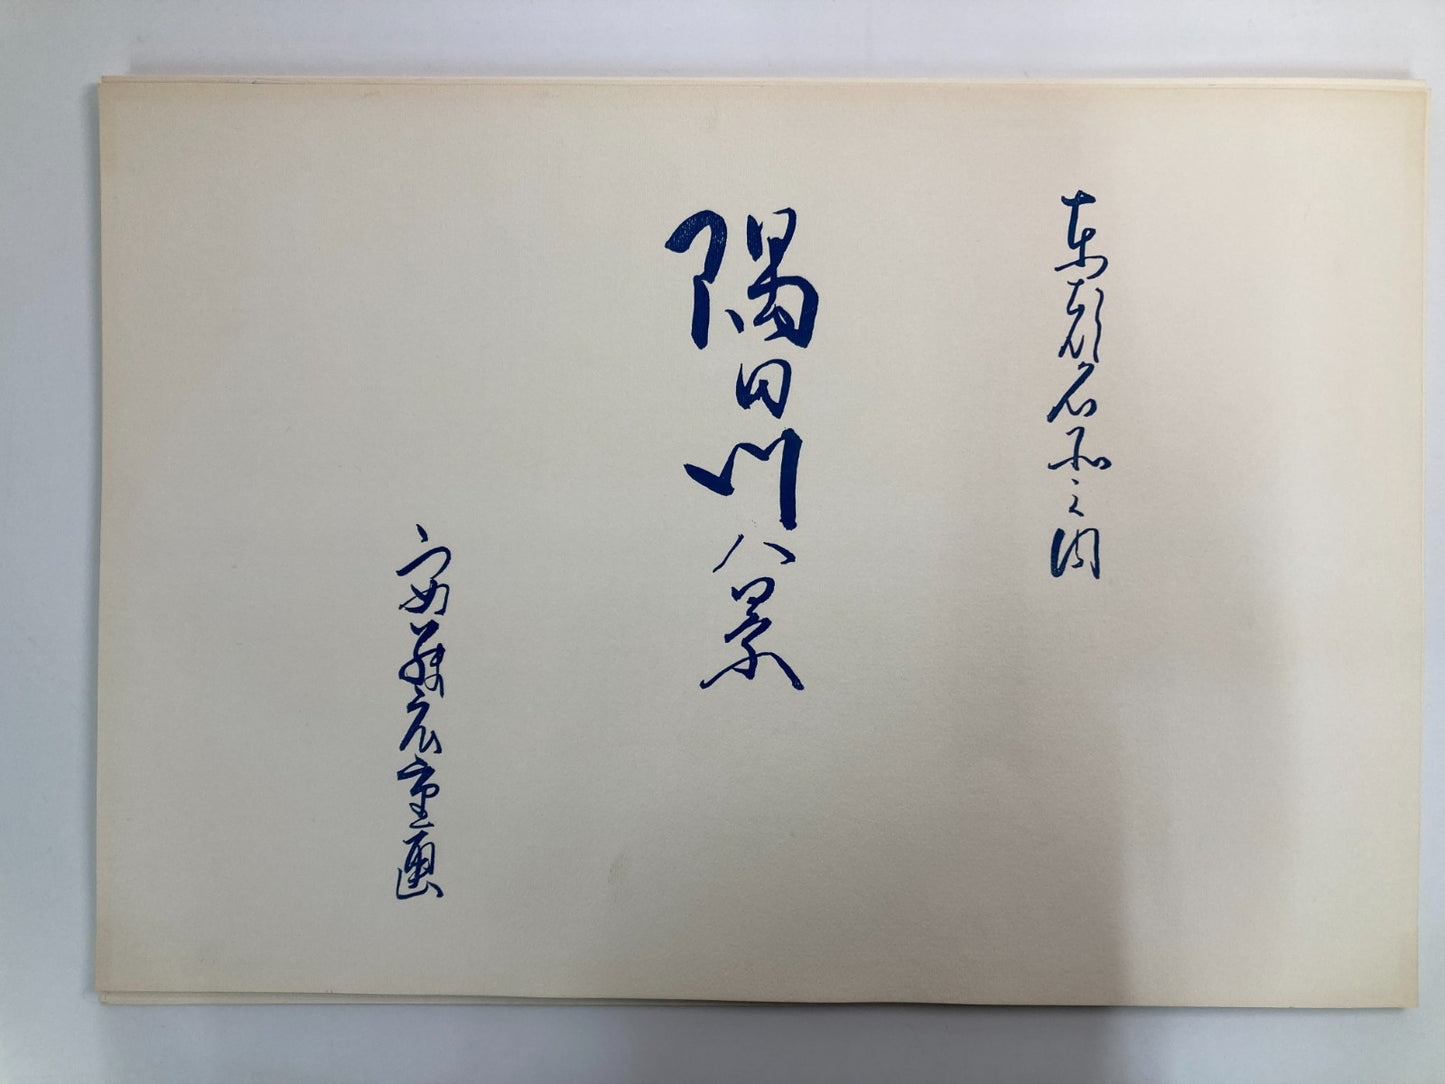 東都名所之内
隅田川八景
安藤広重画